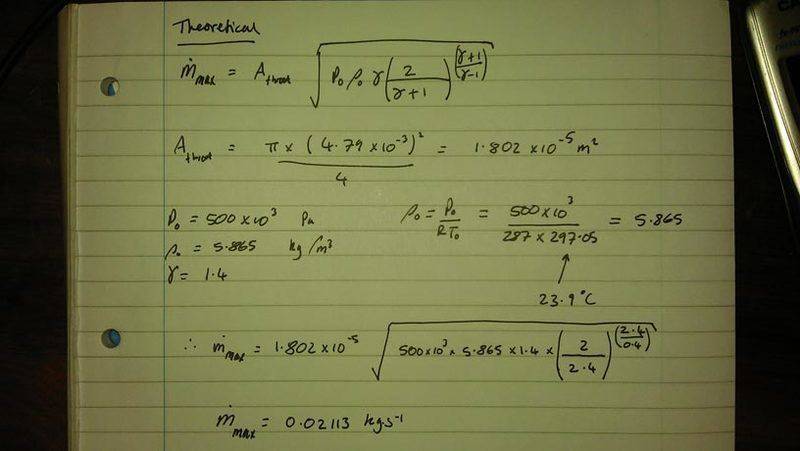 Theoretical
ṁmax = Athroat √(P₀ ρ₀ γ (2/(γ+1))^((γ+1)/(γ-1)))
Athroat = (π × (4.79 × 10⁻³)²)/4 = 1.802 × 10⁻⁵ m²
P₀ = 500 × 10³ Pa
ρ₀ = P₀/RT₀ = (500 × 10³)/(287 × 297.05) = 5.865
ρ₀ = 5.865 kg/m³
γ = 1.4
23.9°C
∴ ṁmax = 1.802 × 10⁻⁵ √(500×10³ × 5.865 × 1.4 × (2/2.4)^(2.4/0.4))
ṁmax = 0.02113 kgs⁻¹